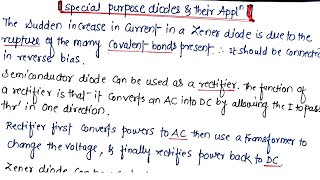 special purpose diodes & their Appl^n
The sudden increase in Current in a Zener diode is due to the
rupture of the many Covalent bonds present ∴ it should be connected
in reverse bias.
Semiconductor diode can be used as a rectifier. The function of
a rectifier is that it converts an AC into DC by allowing the I to pass
thr' in one direction.
Rectifier first converts powers to AC then use a transformer to
change the voltage, & finally rectifies power back to DC.
Zener diode can be